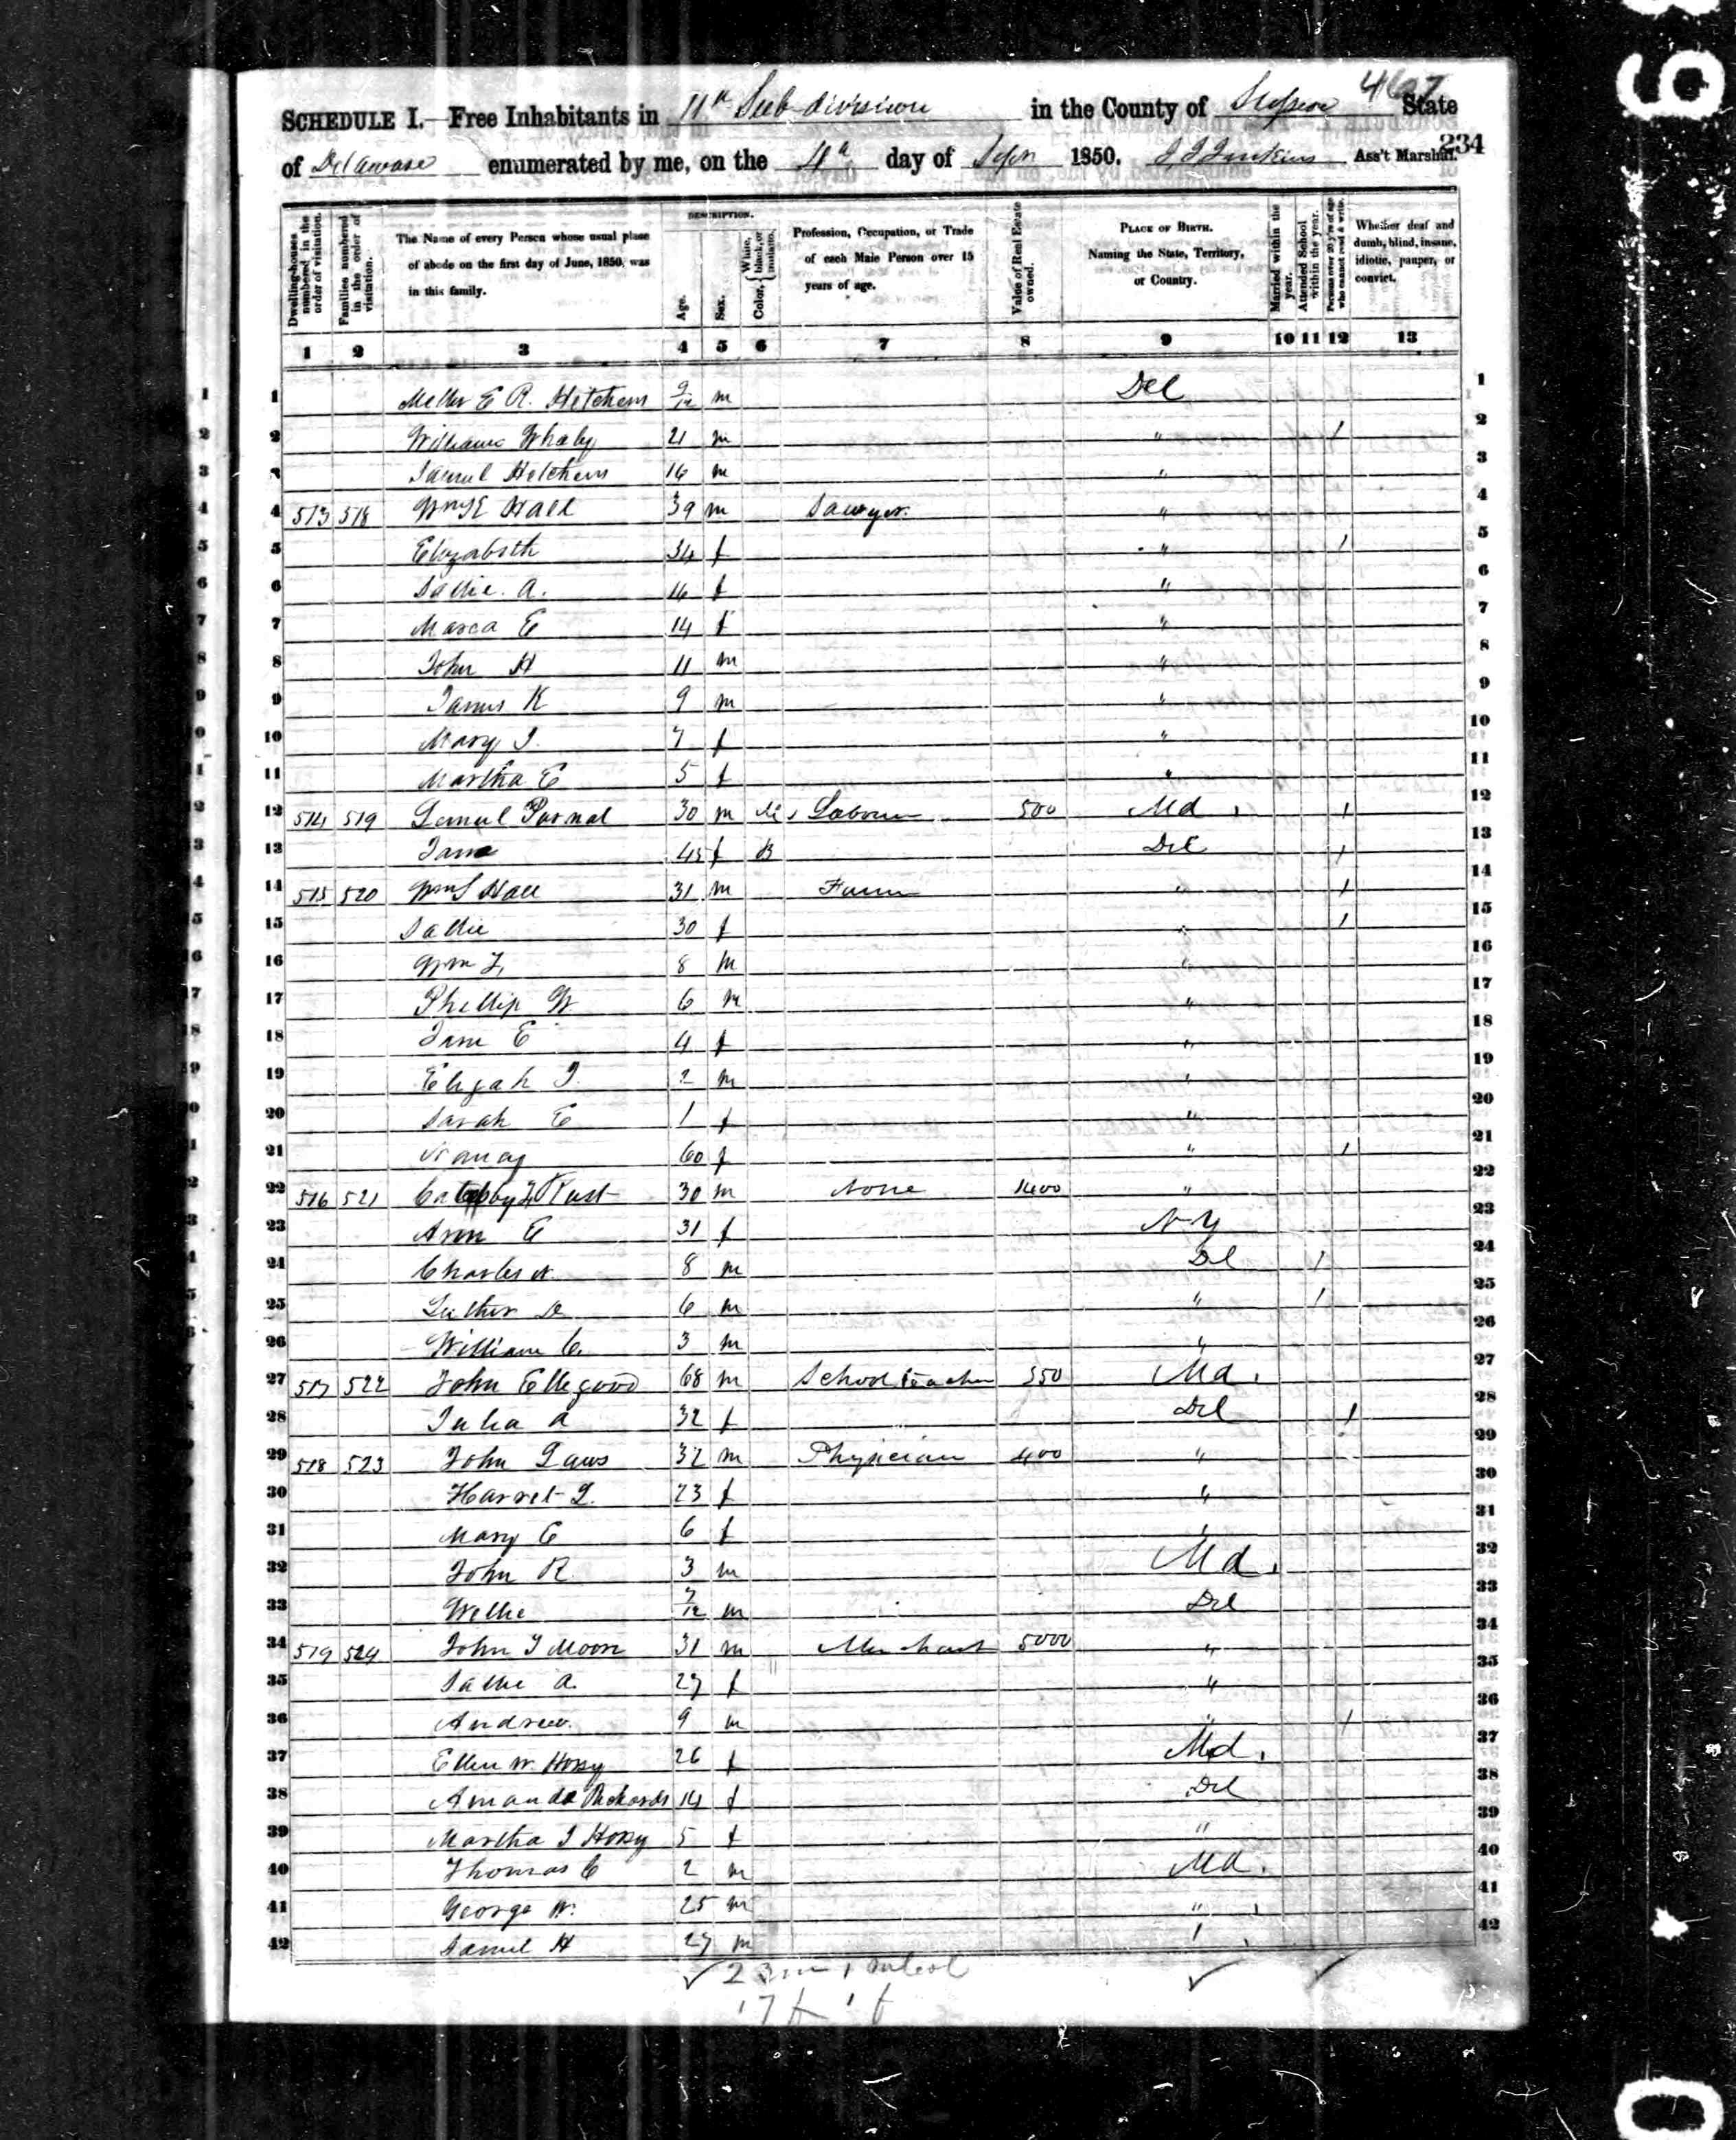 467
SCHEDULE I.—Free Inhabitants in 11th Sub division in the County of Sussex State
234
of Delaware enumerated by me, on the 4th day of Sepr 1850. Ass't Marshal.
DESCRIPTION.
Dwelling-houses numbered in the order of visitation.
Families numbered in the order of visitation.
The Name of every Person whose usual place of abode on the first day of June, 1850, was in this family.
Age.
Sex.
Color, { White, black, or mulatto.
Profession, Occupation, or Trade of each Male Person over 15 years of age.
Value of Real Estate owned.
PLACE OF BIRTH. Naming the State, Territory, or Country.
Married within the year.
Attended School within the year.
Persons over 20 y'rs of age who cannot read & write.
Whether deaf and dumb, blind, insane, idiotic, pauper, or convict.
1 2 3 4 5 6 7 8 9 10 11 12 13
1 E R. Hitchens 9/12 m Del 1
2 William Whaly 21 m " 1 2
3 Samuel Hitchens 16 m " 3
4 513 518 Wm E Hall 39 m Sawyer. " 4
5 Elizabeth 34 f " 1 5
6 Sallie. A. 16 f " 6
7 E 14 f " 7
8 John H 11 m " 8
9 James K 9 m " 9
10 Mary J. 7 f " 10
11 Martha E 5 f " 11
12 514 519 Lemuel 30 m Labourer 500 Md 1 12
13 Jane 45 f B Del 1 13
14 515 520 Wm S Hall 31 m Farmer " 1 14
15 Sallie 30 f " 1 15
16 Wm 8 m " 16
17 Phillip W 6 m " 17
18 Jane E 4 f " 18
19 Elijah J. 2 m " 19
20 Sarah E 1 f " 20
21 60 f " 1 21
22 516 521 Rust 30 m None 1400 " 22
23 Ann E 31 f N Y 23
24 Charles W. 8 m Del 1 24
25 Luther 6 m " 1 25
26 William C. 3 m " 26
27 517 522 John Ellegood 68 m School teacher 350 Md. 27
28 Julia A 32 f Del 1 28
29 518 523 John Laws 32 m Physician 400 " 29
30 Harret L. 23 f " 30
31 Mary C 6 f " 31
32 John R 3 m Md. 32
33 Willie 7/12 m Del 33
34 519 524 John T Moore 31 m Merchant 5000 " 34
35 Sallie A. 27 f " 35
36 Andrew. 9 m " 1 36
37 Ellen W. 26 f Md. 37
38 Amanda 14 f Del 38
39 Martha J 5 f " 39
40 Thomas C 2 m Md. 40
41 George W. 25 m " 41
42 Samuel H 27 m " 42
23 m 1
17 f 1 f